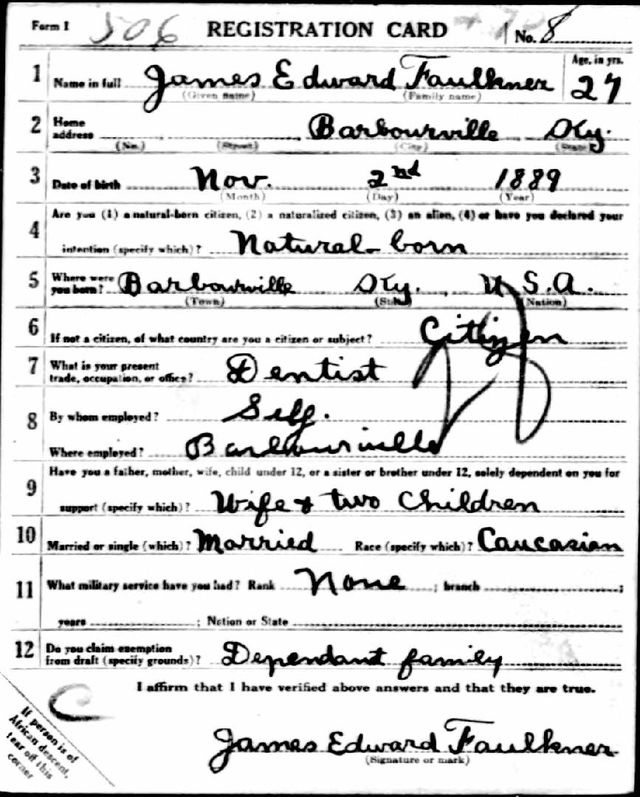 Form 1 506 REGISTRATION CARD No. 8
1 Name in full James Edward Faulkner Age, in yrs. 27
(Given name) (Family name)
2 Home address Barbourville Ky.
(No.) (Street) (City) (State)
3 Date of birth Nov. 2nd 1889
(Month) (Day) (Year)
4 Are you (1) a natural-born citizen, (2) a naturalized citizen, (3) an alien, (4) or have you declared your
intention (specify which)? Natural-born
5 Where were you born? Barbourville Ky. U.S.A.
(Town) (State) (Nation)
6 If not a citizen, of what country are you a citizen or subject? Citizen
7 What is your present trade, occupation, or office? Dentist
8 By whom employed? Self.
Where employed? Barbourville
9 Have you a father, mother, wife, child under 12, or a sister or brother under 12, solely dependent on you for
support (specify which)? Wife & two children
10 Married or single (which)? Married Race (specify which)? Caucasian
11 What military service have you had? Rank None ; branch ;
years ; Nation or State
12 Do you claim exemption from draft (specify grounds)? Dependant family
I affirm that I have verified above answers and that they are true.
If person is of
African descent,
tear off this
corner
James Edward Faulkner
(Signature or mark)